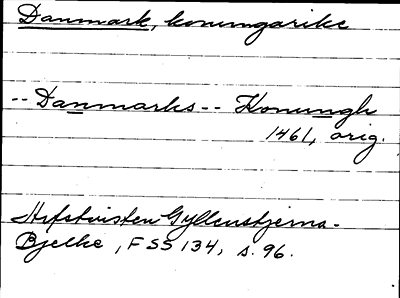 Danmark, konungarike
-- Danmarks -- Konungh
1461, orig.
Hifstvisten Gyllenstjerna -
Bjelke, FSS 134, s. 96.